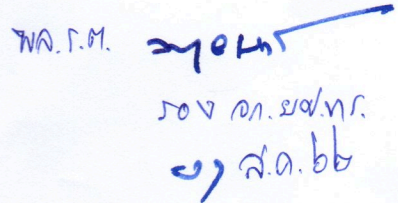 พล.ร.ต.
รอง จก.ยศ.ทร.
๒๑ ส.ค.๖๒